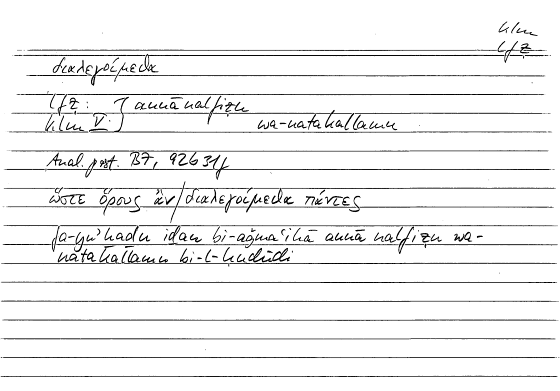 klm
lfẓ
διαλεγοίμεθα
lfẓ : } annā nalfiẓu
klm V: } wa-natakallamu
Anal. post. B7, 92b31f
ὥστε ὅρους ἂν/διαλεγοίμεθα πάντες
fa-yu'ḫaḏu iḏan bi-aǧma'ihā annā nalfiẓu wa-
natakallamu bi-l-ḥudūdi